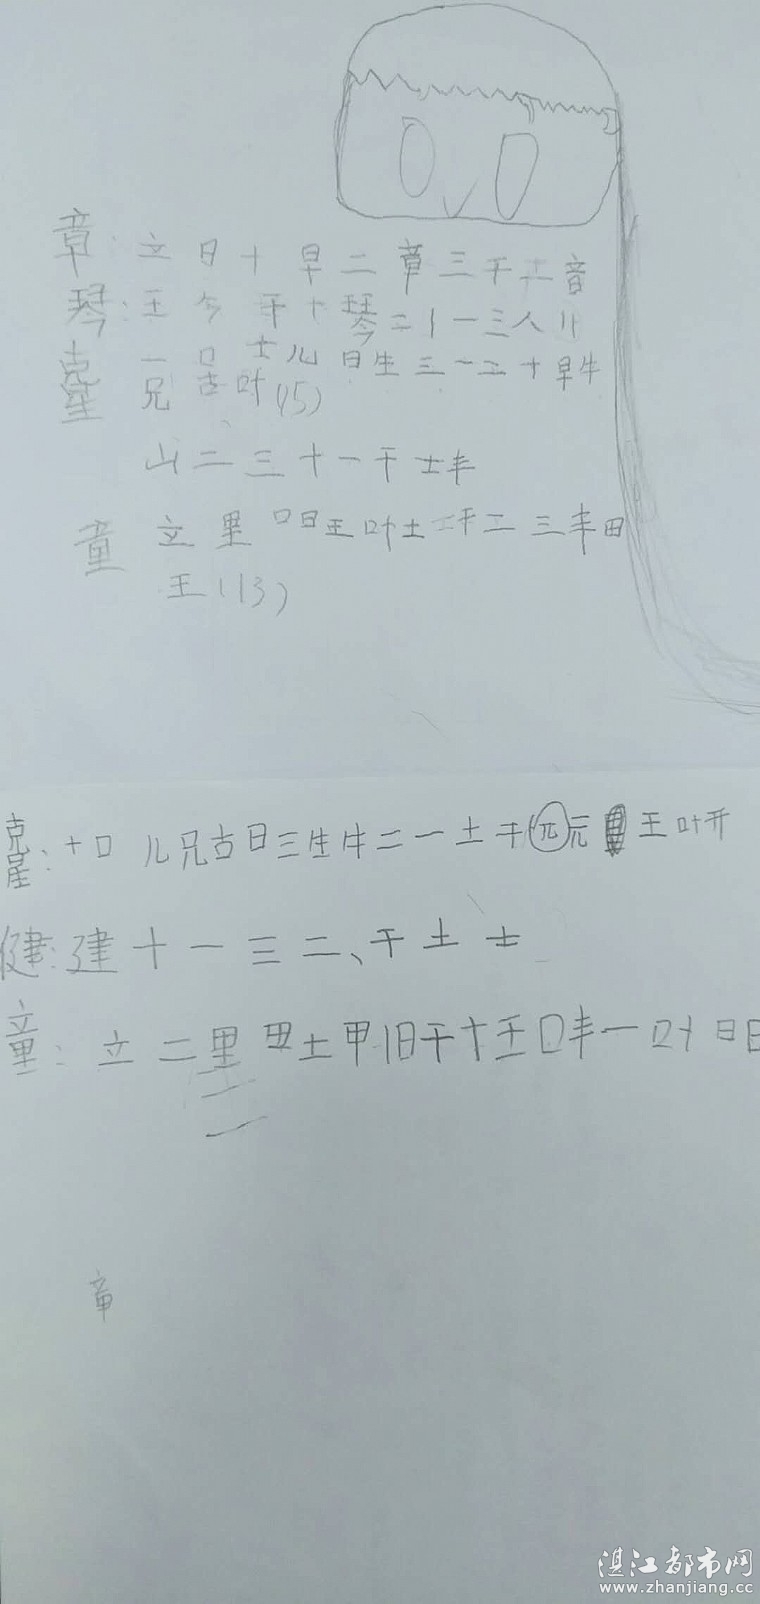 章：立日十早二章三干工音
琴：王今干十琴二丨一三人川
克星 一口士儿日生三一二十早牛
兄古叶(15)
山二三十一干士丰
童 立里口日王叶土二三丰田
王(13)
克星：十口儿兄古日三生牛二一土干元王叶开
健：建十一三二、干土士
童：立二里土甲旧干十王口丰一叶日日
章
湛江都市网
www.zhanjiang.cc